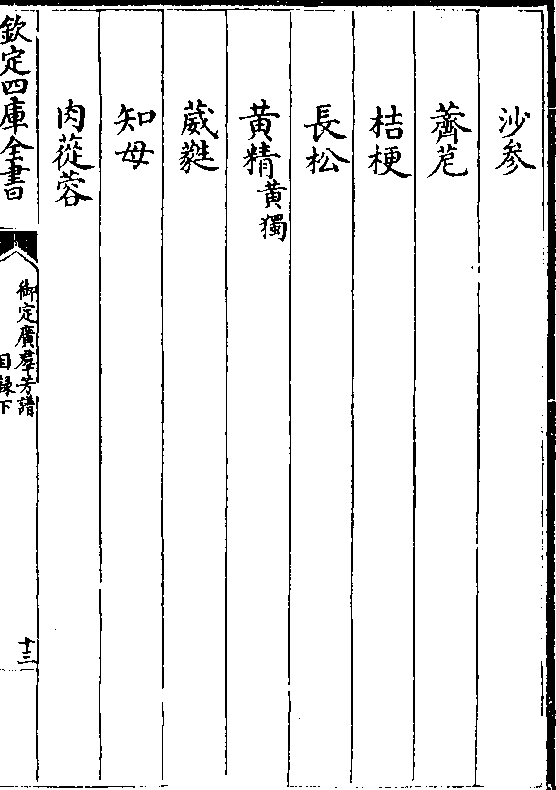 沙參
薺苨
桔梗
長松
黃精黃獨
葳蕤
知母
肉蓯蓉
欽定四庫全書
御定廣羣芳譜
目錄下
十三